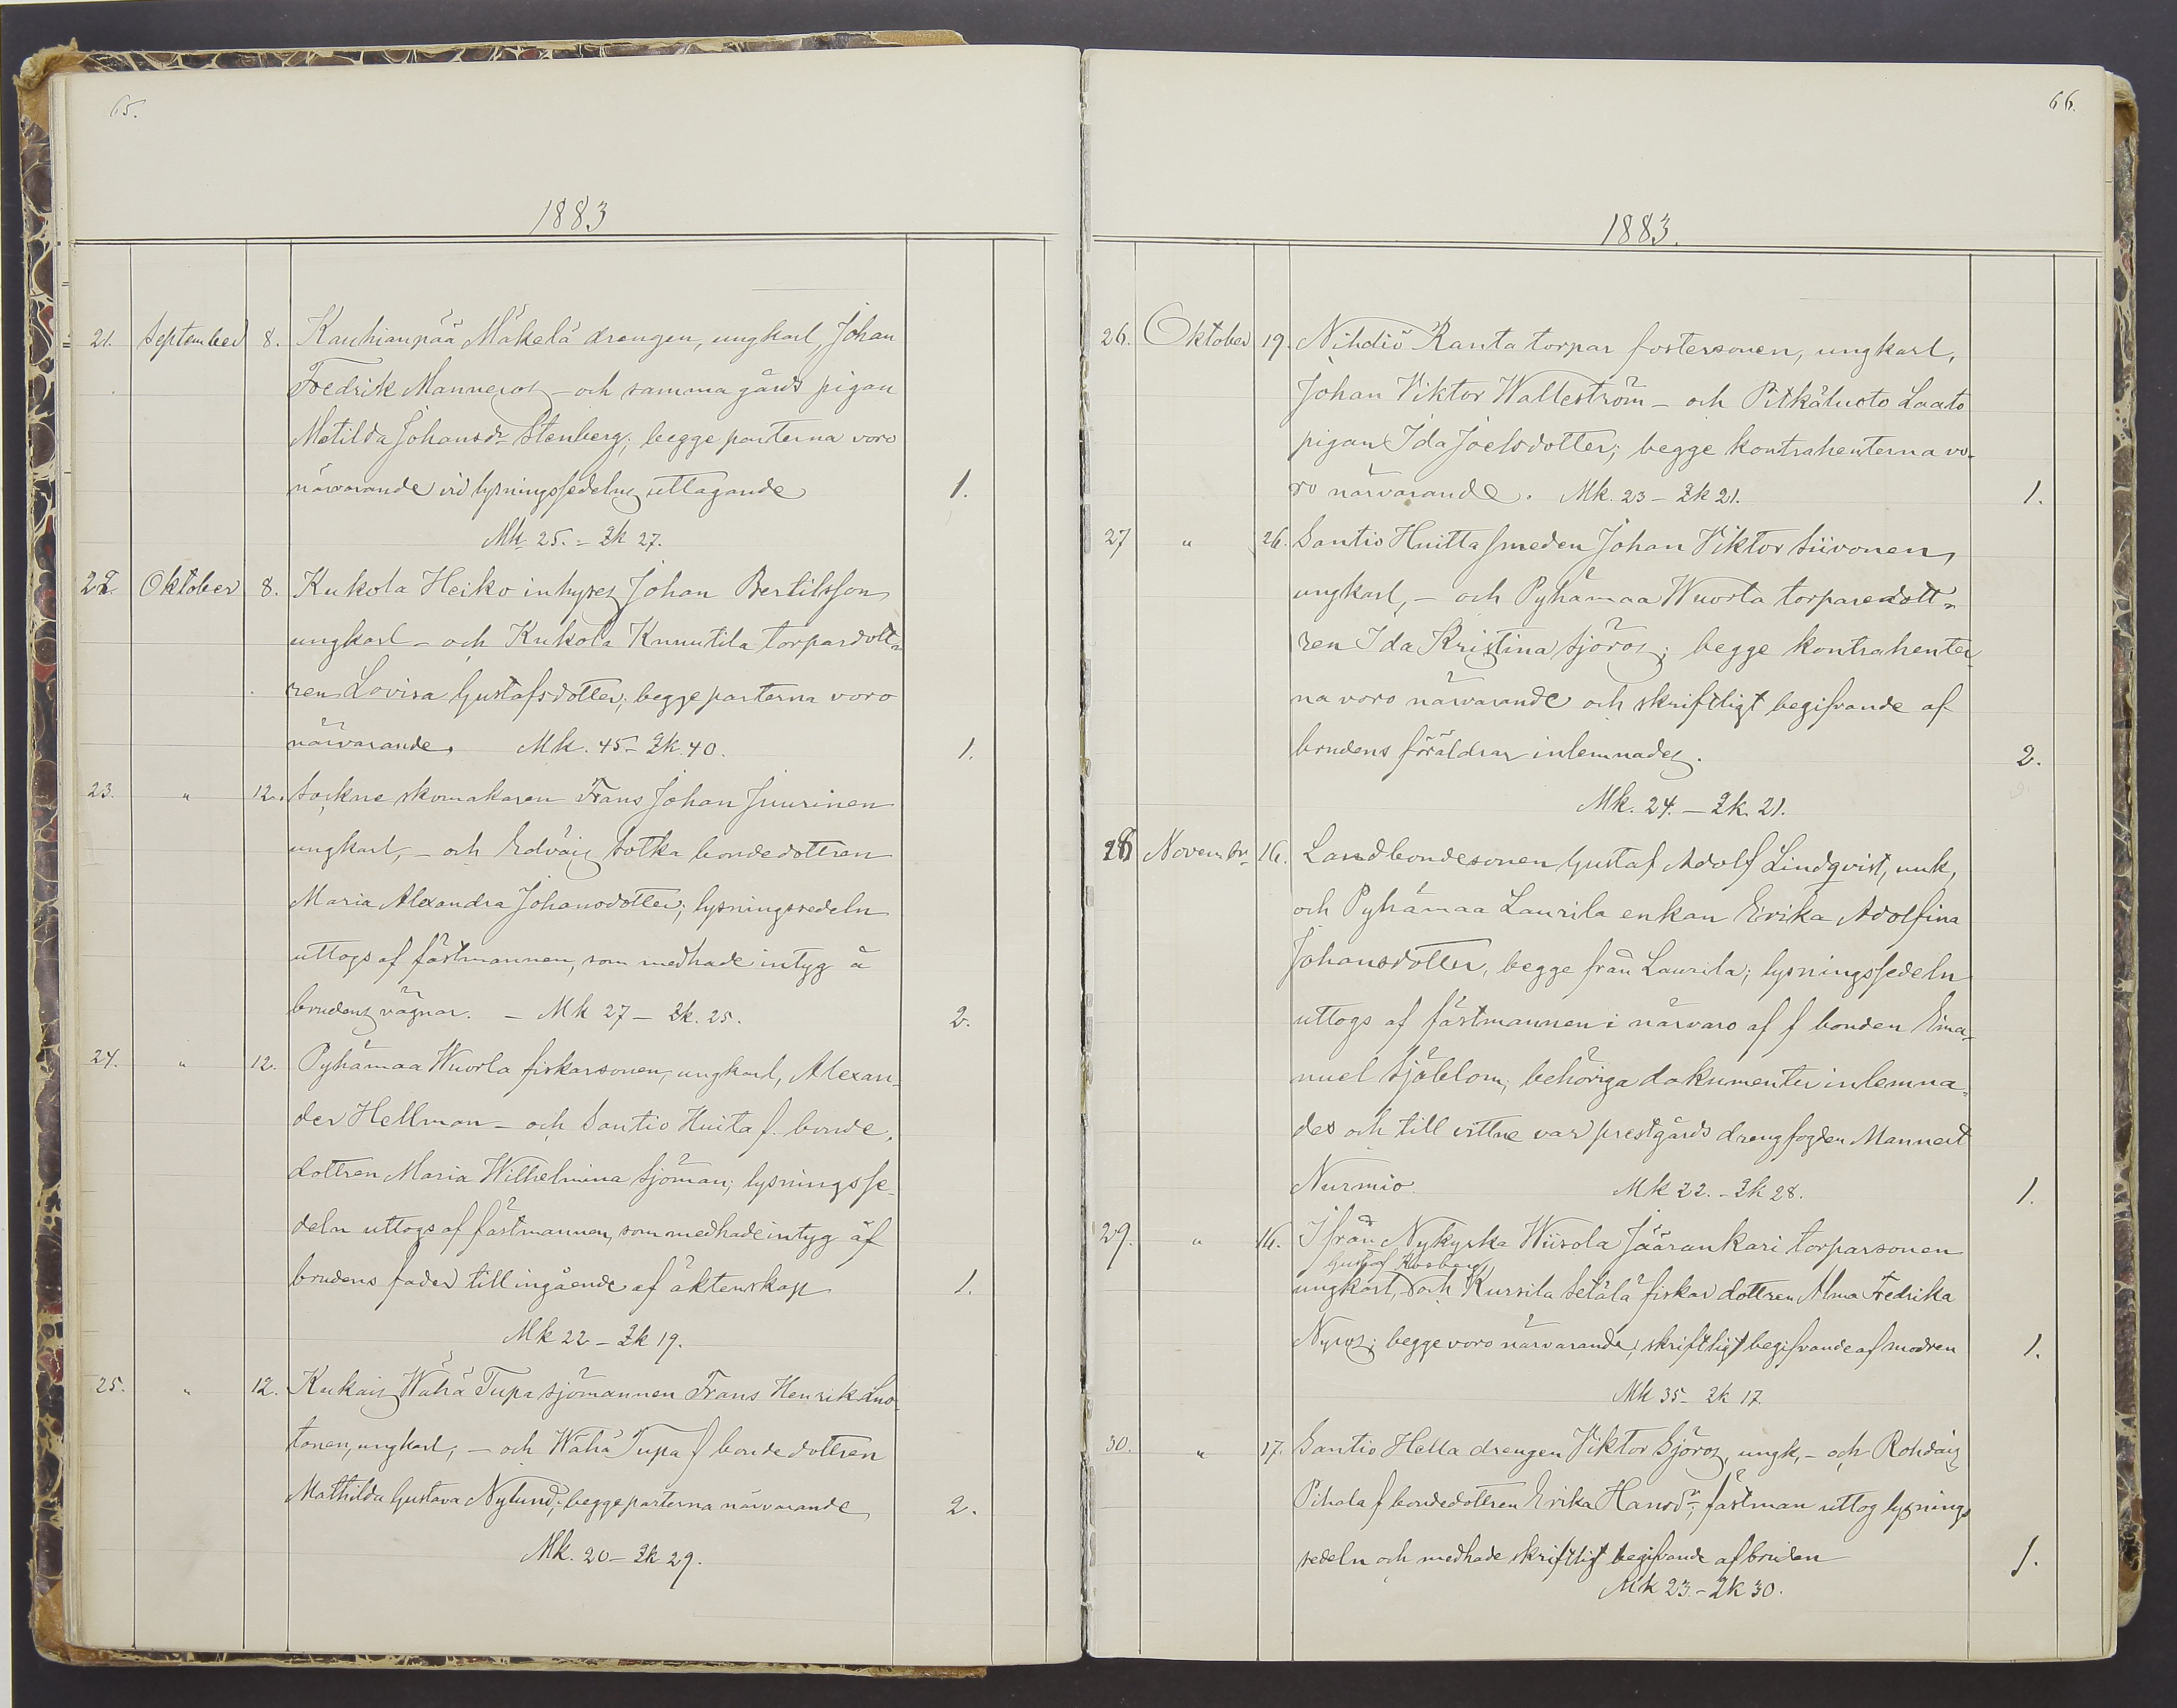 65.
1883
21. September 8. Kauhianpää Mäkelä drengen, ungkarl, Johan
Fredrik Manneros – och samma gårds pigan
Matilda Johansdr Stenberg; begge parterna voro
närvarande vid lysningssedelns uttagande 1.
Mk. 25. – Qk 27.
22. Oktober 8. Kukola Heiko inhyses Johan Bertilsson
ungkarl – och Kukola Knuutila torpardott-
ren Lovisa Gustafsdotter; begge parterna voro
närvarande, Mk. 45 – Qk. 40. 1.
23. " 12. Sockne skomakaren Frans Johan Juurinen
ungkarl, – och Edväis Sotka bondedottren
Maria Alexandra Johansdotter; lysningssedeln
uttogs af fästmannen, som medhade intyg å
brudens vägnar. – Mk 27 – Qk. 25. 2.
24. " 12. Pyhämaa Wuorla fiskarsonen, ungkarl, Alexan-
der Hellman – och Santio Huita f. bonde-
dottren Maria Wilhelmina Sjöman; lysningsse-
deln uttogs af fästmannen, som medhade intyg af
brudens fader till ingående af äktenskap 1.
Mk 22 – Qk 19.
25. " 12. Kukais Wähä Tupa sjömannen Frans Henrik Luo-
tonen, ungkarl, – och Wähä Tupa f bonde dottren
Mathilda Gustava Nylund; begge parterna närvarande 2.
Mk. 20 – Qk 29.
66.
1883.
26. Oktober 19. Nihdiö Ranta torpar fostersonen, ungkarl,
Johan Viktor Walleström – och Pitkäluoto Laato
pigan Ida Joelsdotter; begge kontrahenterna vo-
ro närvarande. Mk. 23 – Qk 21. 1.
27 " 26. Santio Huitta smeden Johan Viktor Siivonen,
ungkarl, – och Pyhämaa Wuorla torparedott-
ren Ida Kristina Sjöros; begge kontrahenter-
na voro närvarande och skriftligt begifvande af
brudens föräldrar inlemnades. 2.
Mk. 24. – Qk. 21.
28 Novembr 16. Landbondesonen Gustaf Adolf Lindqvist, unk,
och Pyhämaa Laurila enkan Erika Adolfina
Johansdotter, begge från Laurila; lysningssedeln
uttogs af fästmannen i närvaro af f bonden Ema-
nuel Sjöblom; behöriga dokumenter inlemna-
des och till vittne var prestgårds drengfogden Mannert
Nurmio. Mk 22. – Qk 28. 1.
29. " 16. Ifrån Nykyrka Wiisola Jäärankari torparsonen
Gustaf
ungkarl, och Kursila Setälä fiskar dottren Alma Fredrika
Nyros; begge voro närvarande, skriftligt begifvande af modren 1.
Mk 35 – Qk 17.
30. " 17. Santio Hella drengen Viktor Sjöros, ungk, – och Rohdais
Pihala f bondedottren Erika Hansdr; fästman uttog lysnings
sedeln och medhade skriftligt begifvande af bruden 1.
Mk 23. – Qk 30.